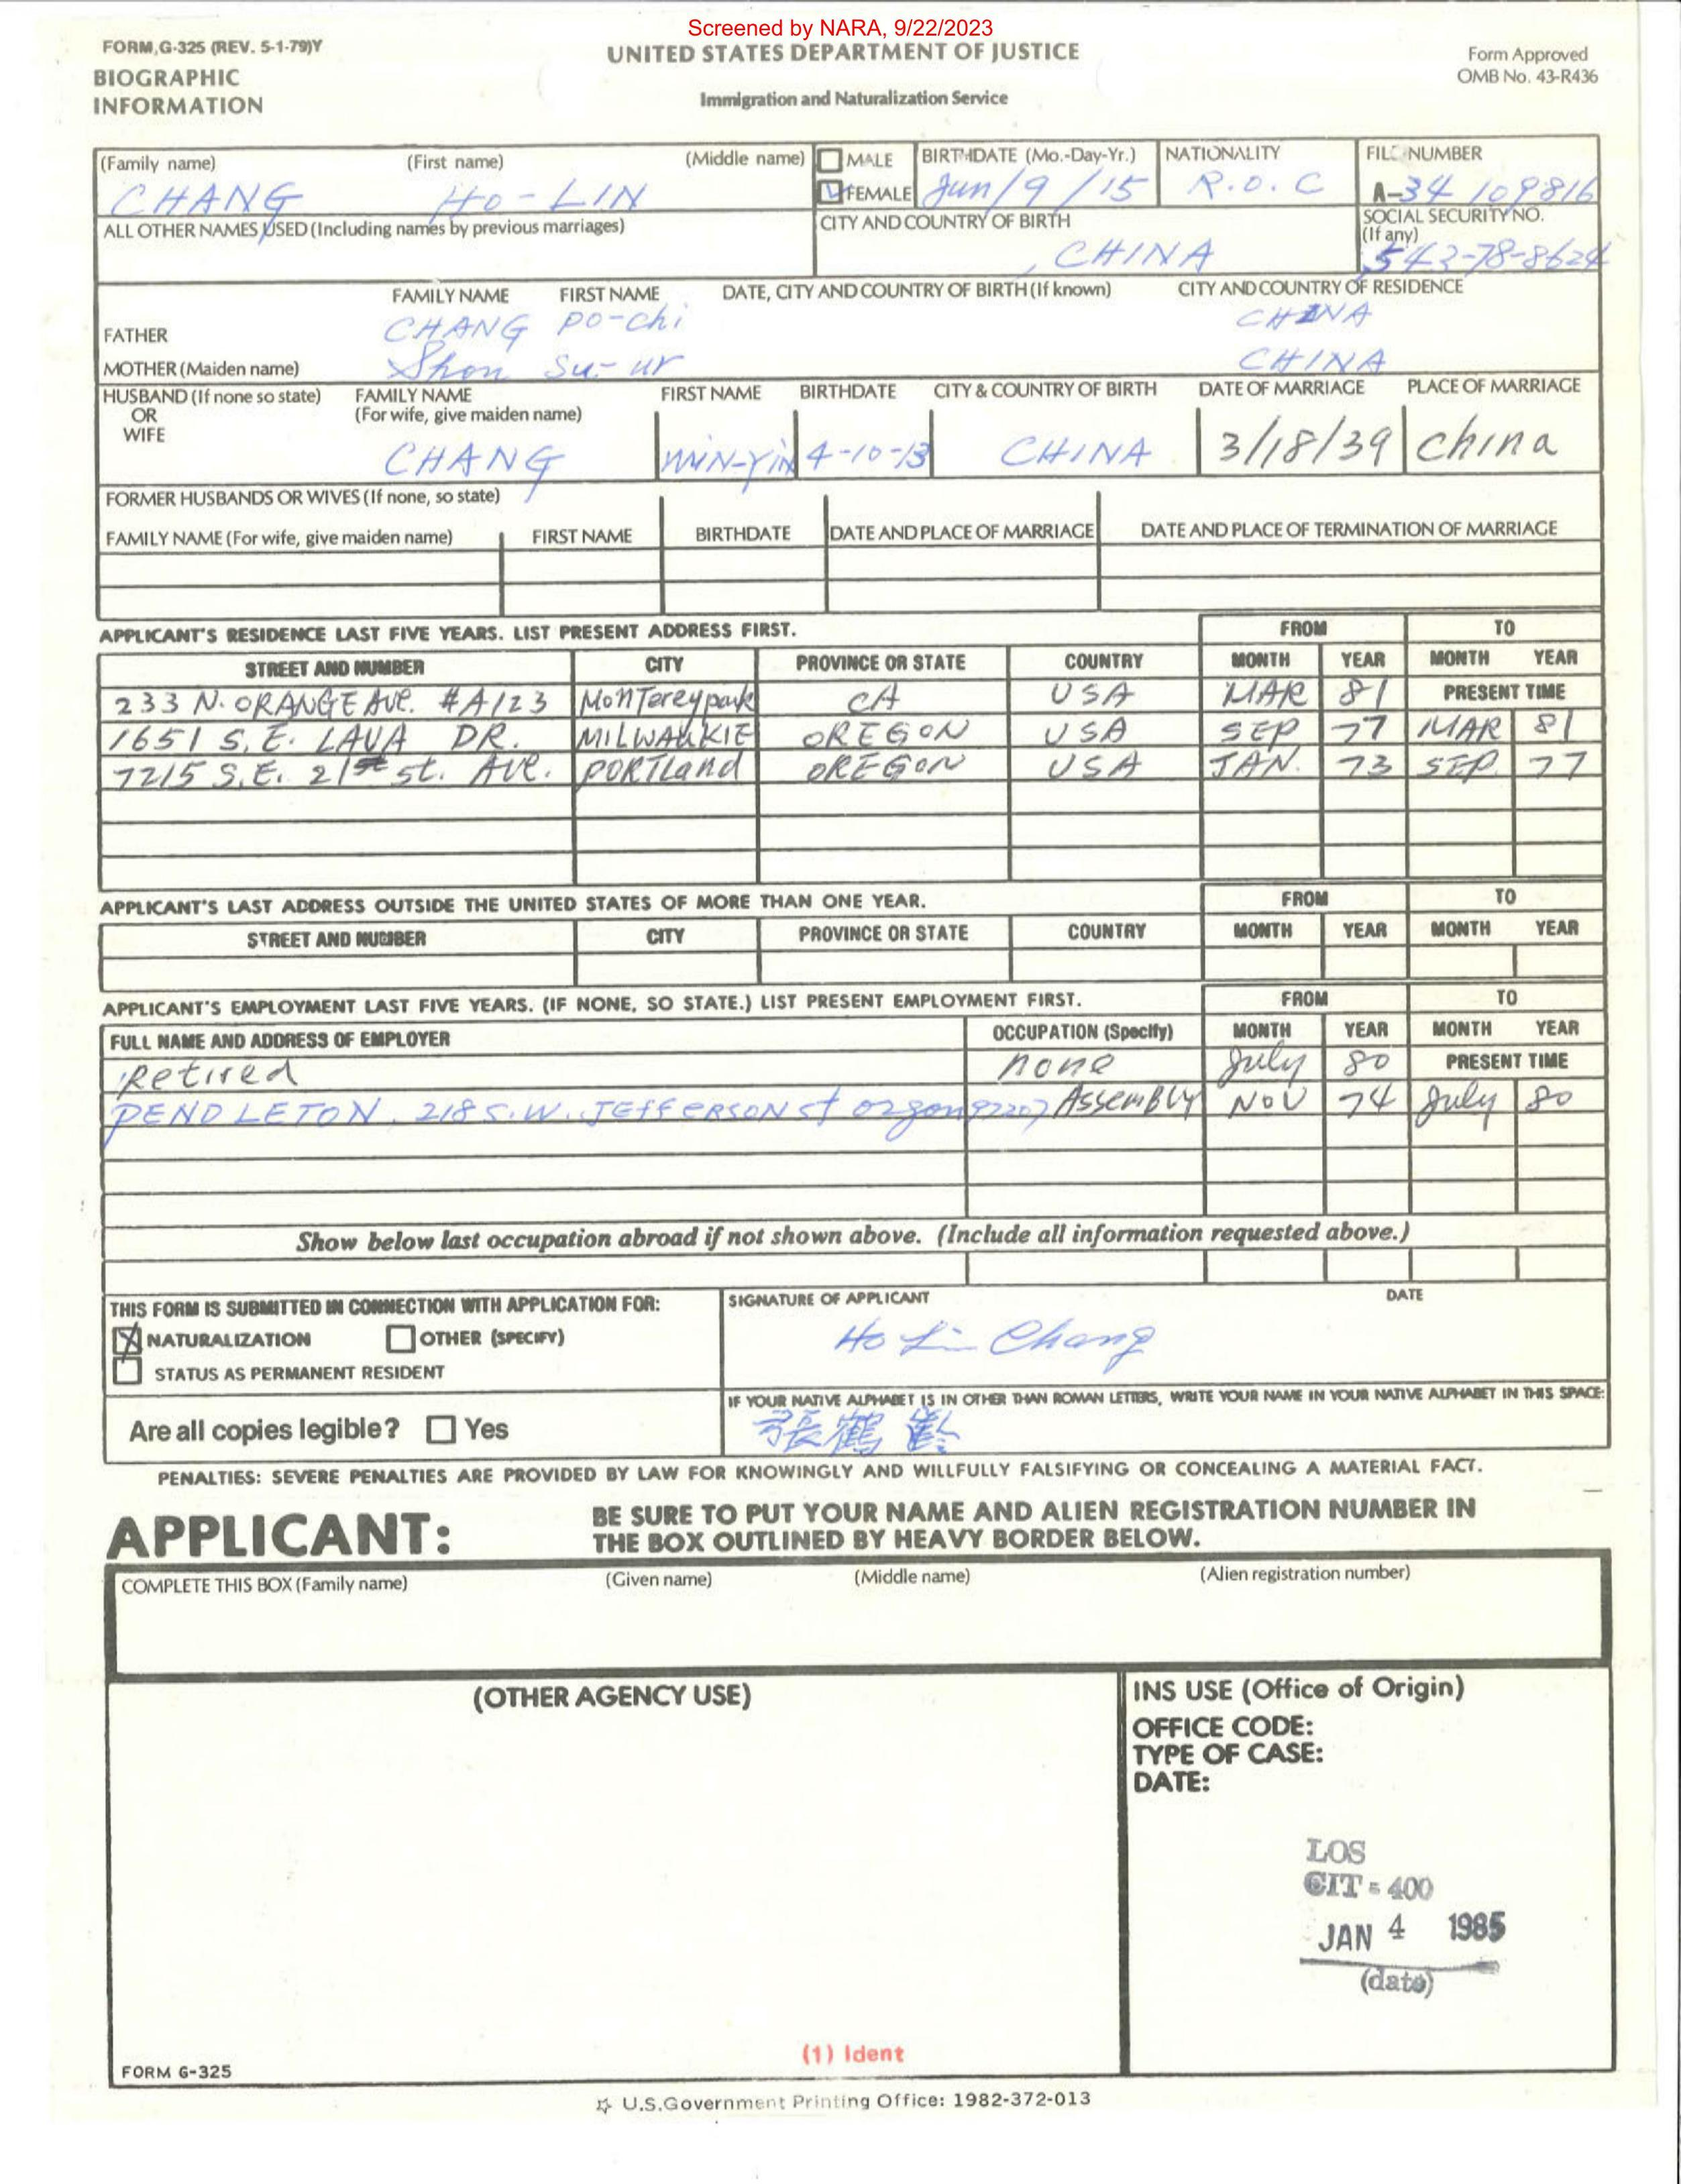 Screened by NARA, 9/22/2023
FORM G-325 (REV. 5-1-79)Y
UNITED STATES DEPARTMENT OF JUSTICE
Form Approved
OMB No. 43-R436
BIOGRAPHIC
INFORMATION
Immigration and Naturalization Service
(Family name) (First name) (Middle name) MALE FEMALE BIRTHDATE (Mo.-Day-Yr.) NATIONALITY FILE NUMBER
CHANG HO-LIN Jun/9/15 R.O.C A-34 109816
ALL OTHER NAMES USED (Including names by previous marriages) CITY AND COUNTRY OF BIRTH SOCIAL SECURITY NO. (If any)
CHINA 543-78-8624
FAMILY NAME FIRST NAME DATE, CITY AND COUNTRY OF BIRTH (If known) CITY AND COUNTRY OF RESIDENCE
FATHER CHANG Po-Chi CHINA
MOTHER (Maiden name) Shon Su-ur CHINA
HUSBAND (If none so state) OR WIFE FAMILY NAME (For wife, give maiden name) FIRST NAME BIRTHDATE CITY & COUNTRY OF BIRTH DATE OF MARRIAGE PLACE OF MARRIAGE
CHANG MIN-YIN 4-10-13 CHINA 3/18/39 China
FORMER HUSBANDS OR WIVES (If none, so state)
FAMILY NAME (For wife, give maiden name) FIRST NAME BIRTHDATE DATE AND PLACE OF MARRIAGE DATE AND PLACE OF TERMINATION OF MARRIAGE
APPLICANT'S RESIDENCE LAST FIVE YEARS. LIST PRESENT ADDRESS FIRST. FROM TO
STREET AND NUMBER CITY PROVINCE OR STATE COUNTRY MONTH YEAR MONTH YEAR
233 N. ORANGE AVE. #A123 MonTereypark CA USA MAR 81 PRESENT TIME
1651 S.E. LAVA DR. MILWAUKIE OREGON USA SEP 77 MAR 81
7215 S.E. 21st st. AVE. PORTLand OREGON USA JAN. 73 SEP. 77
APPLICANT'S LAST ADDRESS OUTSIDE THE UNITED STATES OF MORE THAN ONE YEAR. FROM TO
STREET AND NUMBER CITY PROVINCE OR STATE COUNTRY MONTH YEAR MONTH YEAR
APPLICANT'S EMPLOYMENT LAST FIVE YEARS. (IF NONE, SO STATE.) LIST PRESENT EMPLOYMENT FIRST. FROM TO
FULL NAME AND ADDRESS OF EMPLOYER OCCUPATION (Specify) MONTH YEAR MONTH YEAR
Retired none July 80 PRESENT TIME
PENDLETON. 218 S.W. JEFFERSON st orgon 97207 Assembly NOV 74 July 80
Show below last occupation abroad if not shown above. (Include all information requested above.)
THIS FORM IS SUBMITTED IN CONNECTION WITH APPLICATION FOR: SIGNATURE OF APPLICANT DATE
NATURALIZATION OTHER (SPECIFY) Ho Lin Chang
STATUS AS PERMANENT RESIDENT
IF YOUR NATIVE ALPHABET IS IN OTHER THAN ROMAN LETTERS, WRITE YOUR NAME IN YOUR NATIVE ALPHABET IN THIS SPACE:
Are all copies legible? Yes 張鶴齡
PENALTIES: SEVERE PENALTIES ARE PROVIDED BY LAW FOR KNOWINGLY AND WILLFULLY FALSIFYING OR CONCEALING A MATERIAL FACT.
APPLICANT: BE SURE TO PUT YOUR NAME AND ALIEN REGISTRATION NUMBER IN
THE BOX OUTLINED BY HEAVY BORDER BELOW.
COMPLETE THIS BOX (Family name) (Given name) (Middle name) (Alien registration number)
(OTHER AGENCY USE)
INS USE (Office of Origin)
OFFICE CODE:
TYPE OF CASE:
DATE:
LOS
CIT = 400
JAN 4 1985
(date)
(1) Ident
FORM G-325
☆ U.S. Government Printing Office: 1982-372-013